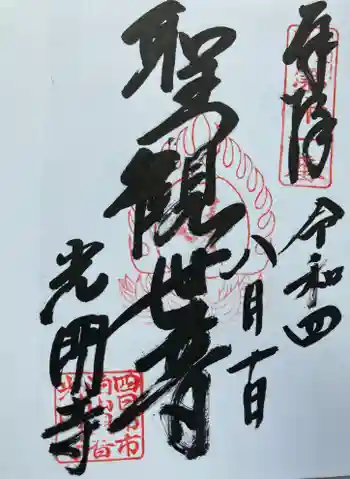 奉拝
令和四
八月十日
聖観世音
光明寺
四日市